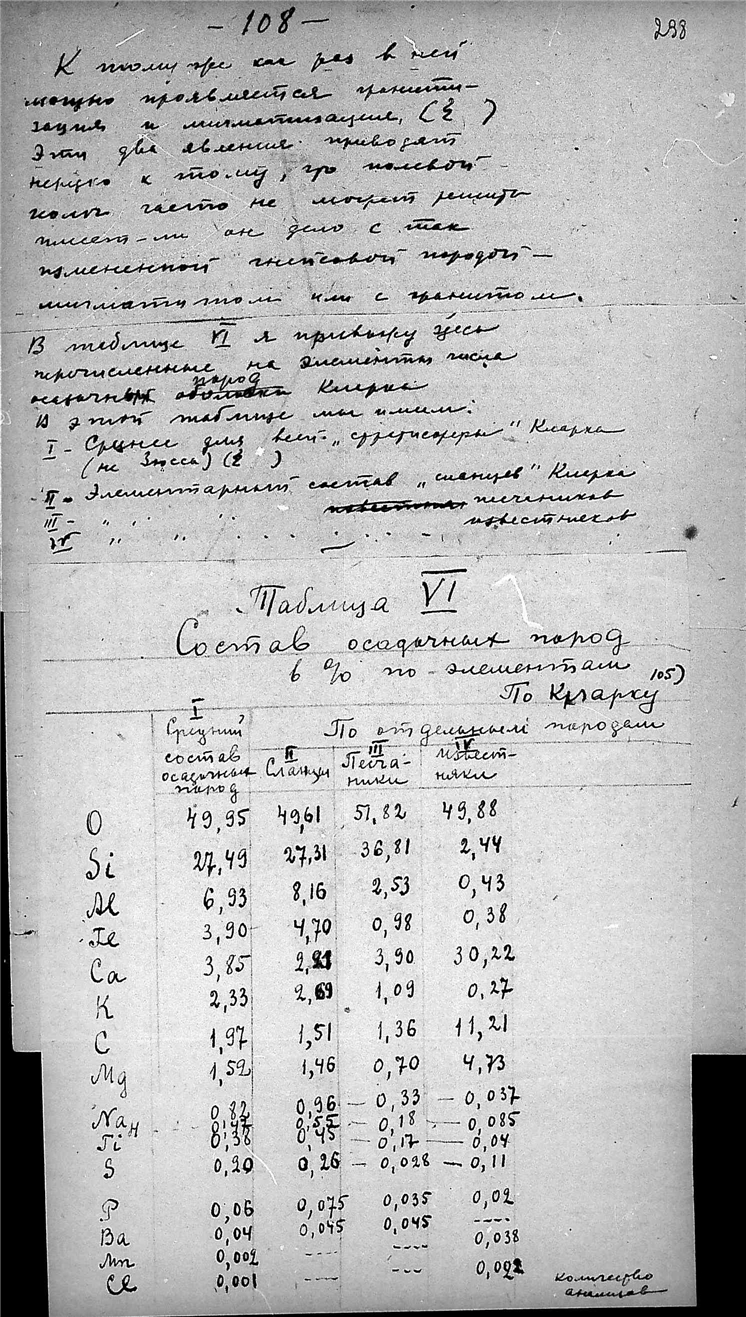 - 108 -
298
К тому же как раз в ней
мощно проявляется гранити-
зация и мигматизация. (ξ )
Эти два явления приводят
нередко к тому, что полевой
геолог часто не может решить
имеет-ли он дело с так
измененной гнейсовой породой -
мигматитом или с гранитом.
В таблице VI я привожу здесь
перечисленные на элементы числа
осадочных пород Кларка
В этой таблице мы имеем:
I - Среднее для всей "стратисферы" Кларка
(не Зюсса) (ξ )
II - Элементарный состав "сланцев" Кларка
III - " " " песчаников
IV " " известняков
Таблица VI
Состав осадочных пород
в % по элементам
По Кларку 105)
I По отдельным породам
Средний состав осадочных пород II Сланцы III Песча-ники IV Извест-няки
O 49,95 49,61 51,82 49,88
Si 27,49 27,31 36,81 2,44
Al 6,93 8,16 2,53 0,43
Fe 3,90 4,70 0,98 0,38
Ca 3,85 3,90 30,22
K 2,33 2,69 1,09 0,27
C 1,97 1,51 1,36 11,21
Mg 1,52 1,46 0,70 4,73
Na 0,82 0,96 - 0,33 - 0,037
H 0,47 0,55 - 0,18 - 0,085
Ti 0,38 0,45 - 0,17 - 0,04
S 0,20 0,26 - 0,028 - 0,11
P 0,06 0,075 0,035 0,02
Ba 0,04 0,045 0,045 ----
Mn 0,002 ---- ---- 0,038
Cl 0,001 ---- --- 0,022
количество
анализов